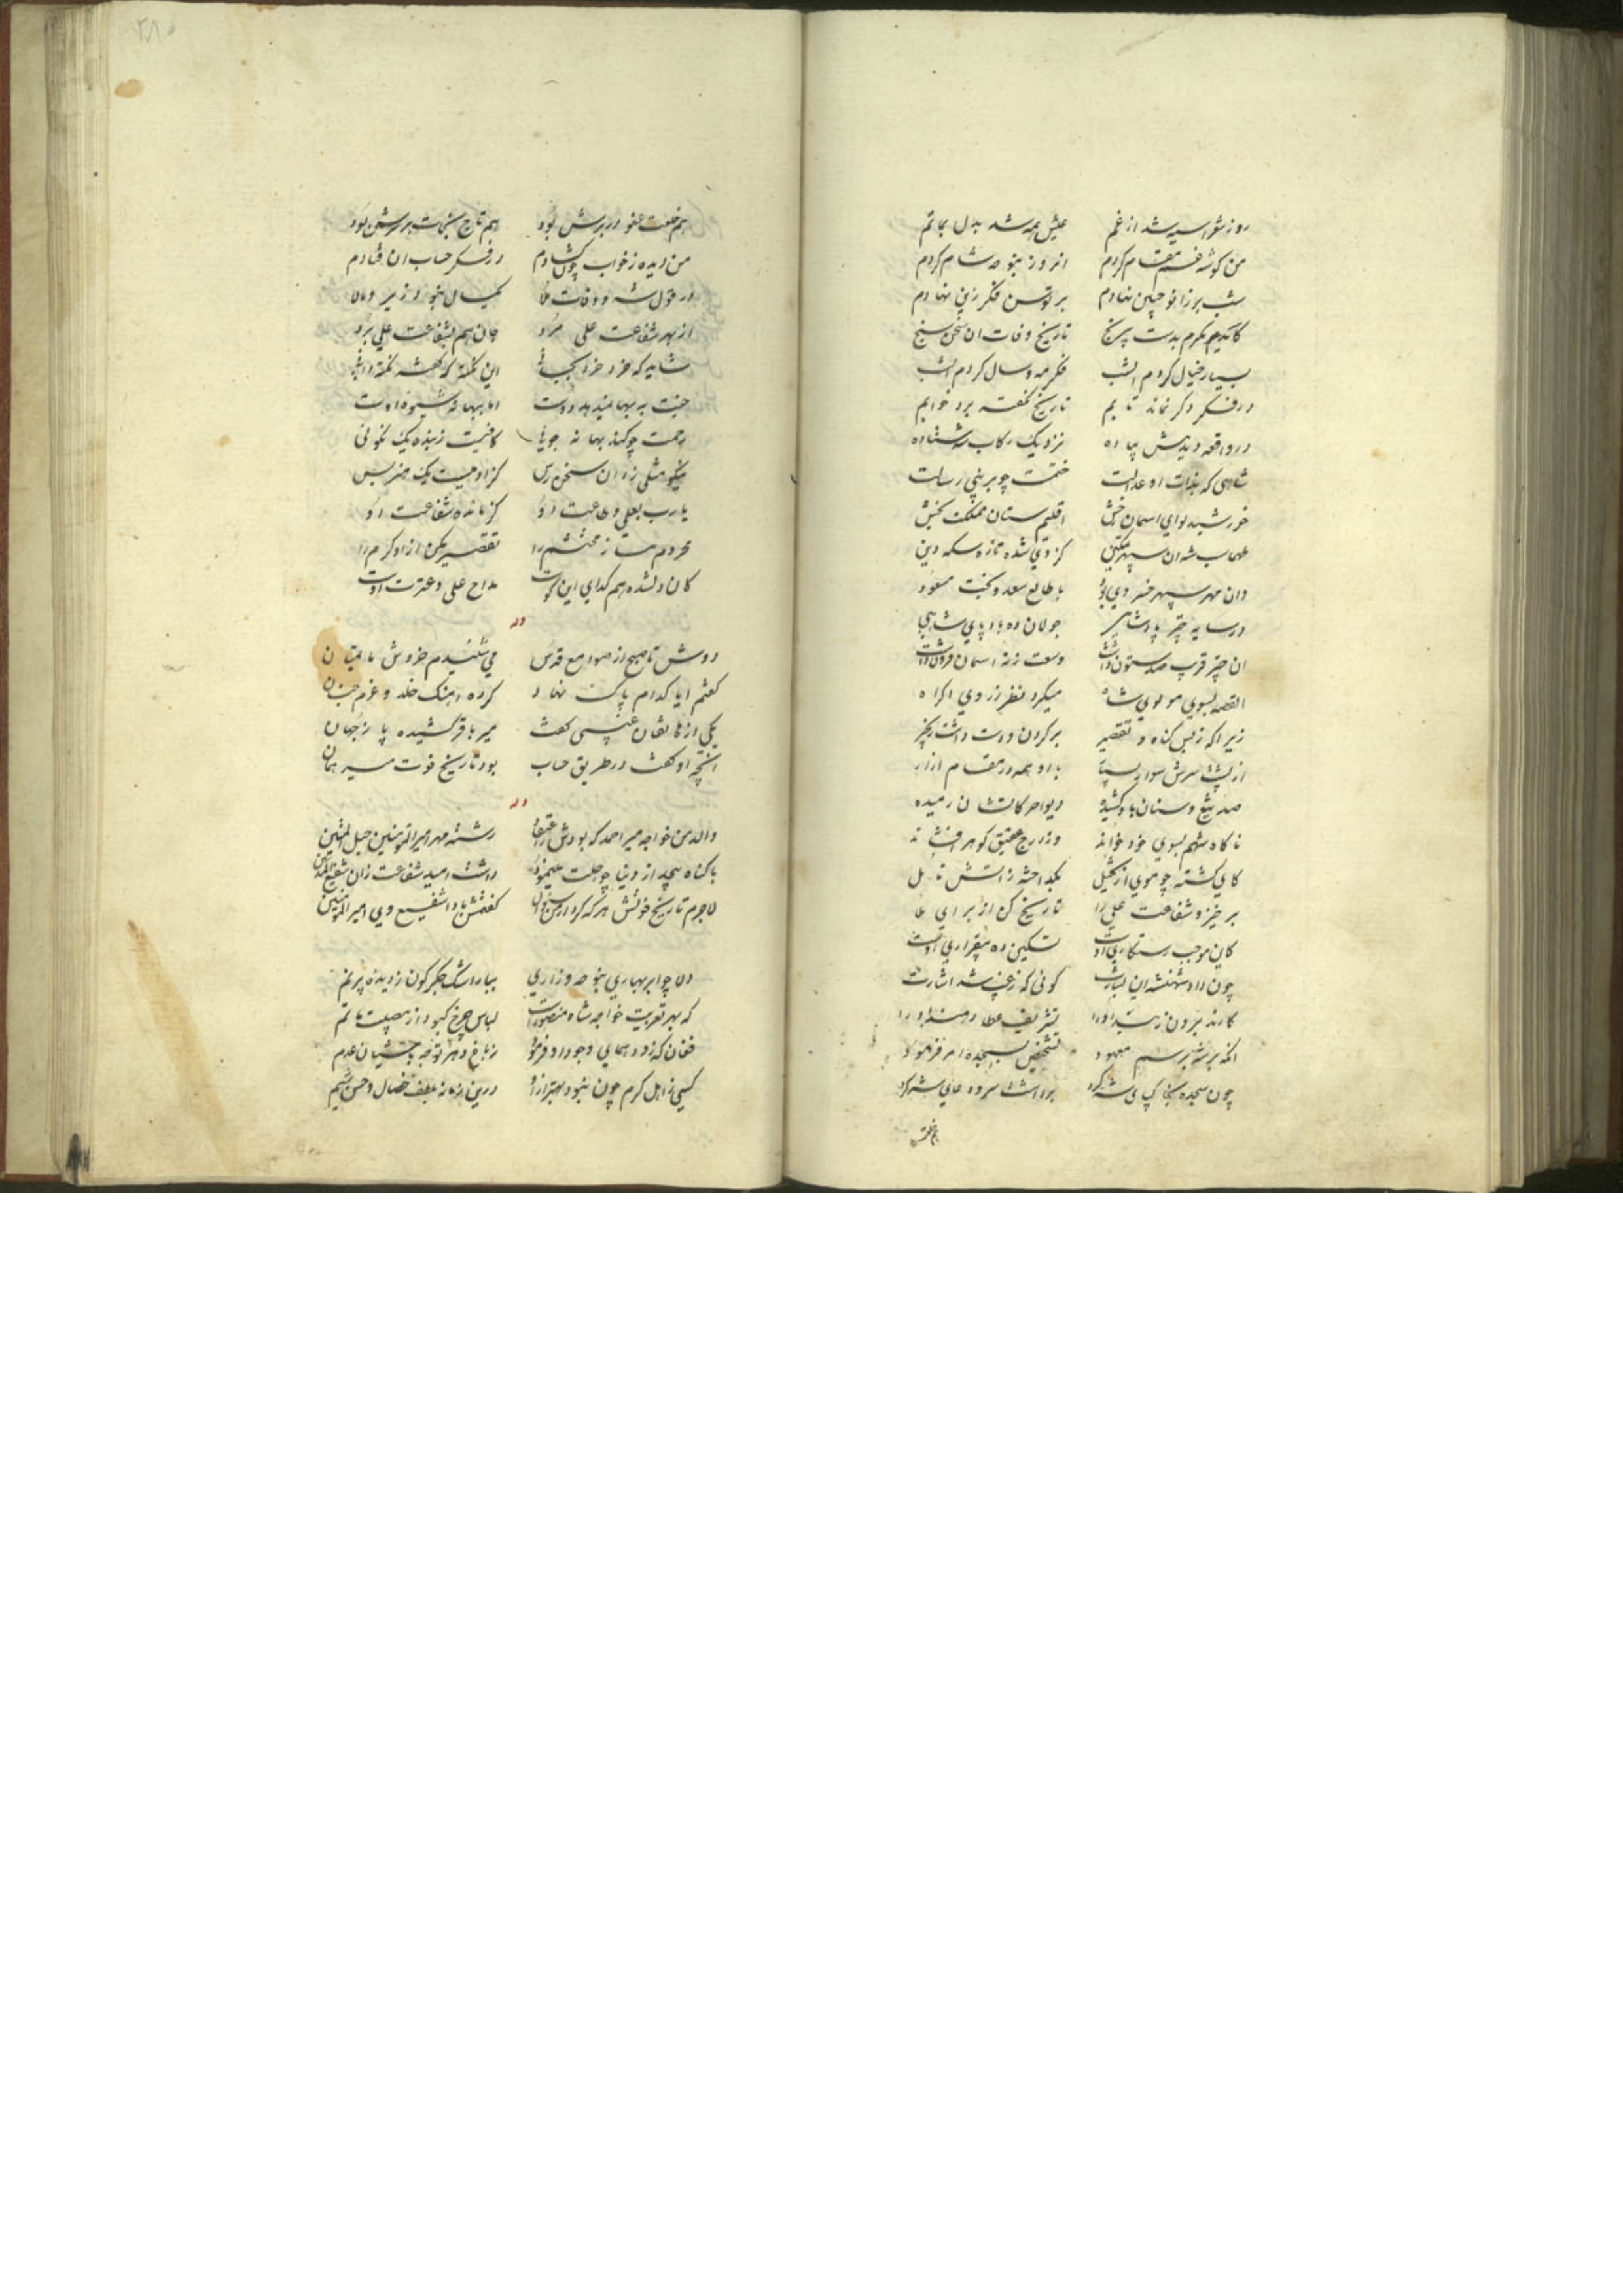 روز شعرا سیه شد از غم عیش همه شد بدل بماتم
من گوشه غم مقام کردم انروز بنوحه شام کردم
شب بر زانو جبین نهادم بر توسن فکر زین نهادم
کاریم بکرم بدست تاریخ وفات ان سخن سنج
بسیار خیال کردم انشب فکر مه و سال کردم انشب
در فکر دگر نماند تابم تاریخ نگفته برد خوابم
در واقعه دیدمش پیاده نزدیک رکاب شه ستاده
شاهی که بذات او عدالت ختمست چو بر نبی رسالت
خورشید لوای اسمان رخش اقلیم ستان مملکت بخش
طهماسب شه ان سپهر تمکین کز وی شده تازه سکه دین
وان مهر سپهر خسروی بود با طالع سعد و بخت مسعود
در سایه چتر پادشاهی جولان ده بادپای شاهی
ان چتر قرب صد ستون داشت وسعت ز نه اسمان فزون داشت
القصه بسوی مولوی شاه میکرد نظر ز روی اکراه
زیرا که ز بس گناه و تقصیر بر گردن و دست داشت زنجیر
از پشت سرش سوار بسیار با او همه در مقام ازار
صد تیغ و سنان باو کشیده دیوار حرکاتشان رمیده
ناگاه شهم بسوی خود خواند وز درج عقیق گوهر افشاند
کای گشته چو موی از تخیل بگداخته ز اتش تامل
برخیز و شفاعت علی را تاریخ کن از برای ملا
کاین موجب رستگاری اوست تسکین ده بیقراری اوست
چون داد شهنشه این بشارت گوئی که ز غیب شد اشارت
کارند برون ز بند او را تشریف عطا دهند او را
انگه برش برسم معهود شخصیش بسجده امر فرمود
چون سجده بخاک پای شه کرد برداشت سر و دعای شه کرد
هم خلعت
هم خلعت عفو در برش بود هم تاج نجات بر سرش بود
من دیده ز خواب چون گشادم در فکر حساب ان فتادم
در قول شه و وفات ملا یکسال نبود زیر و بالا
از بهر شفاعت علی مرد جان هم بشفاعت علی برد
شاید که خرد خرد بجانی این نکته که گفته نکته دانی
جنت به بها نمیدهد دوست اما ببهانه شیوه اوست
رحمت چو کند بهانه جوئی کافیست ز بنده یک نکوئی
نیکو مثلی زد ان سخن رس گر اوست یک حرف بس
یارب بعلی و طاعت او کز مانده شفاعت او
محروم مساز محتشم را تقصیر مکن ازو کرم را
کان دلشده هم گدای این کوست مداح علی و عترت اوست
وله
دوش تا صبح از صوامع قدس می شنیدم خروش ماتمیان
گفتم ایا کدام پاک نهاد کرده اهنگ خلد و عزم جنان
یکی از هاتفان غیبی گفت میر باقر کشیده پا ز جهان
انچه او گفت در طریق حساب بود تاریخ فوت میر همان
وله
والد من خواجه میر احمد که بودش اعتقاد رشته مهر امیرالمؤمنین حبل المتین
با گناه بیحد از دنیا چو رحلت مینمود داشت امید شفاعت زان شفیع المذنبین
لاجرم تاریخ فوتش هر که کرد از من سؤال گفتمش بادا شفیع وی امیرالمؤمنین
دلا چو ابر بهاری بنوحه و زاری ببار اشک جگر گون ز دیده پر نم
که بهر تعزیت خواجه شاه منصورست لباس چرخ کبود از مصیبت ماتم
فغان که زود همای وجود او فرمود ز باغ دهر توجه باشیان عدم
کسی ز اهل کرم چون نبود بهتر ازو درین زمانه بلطف خصال و حسن شیم